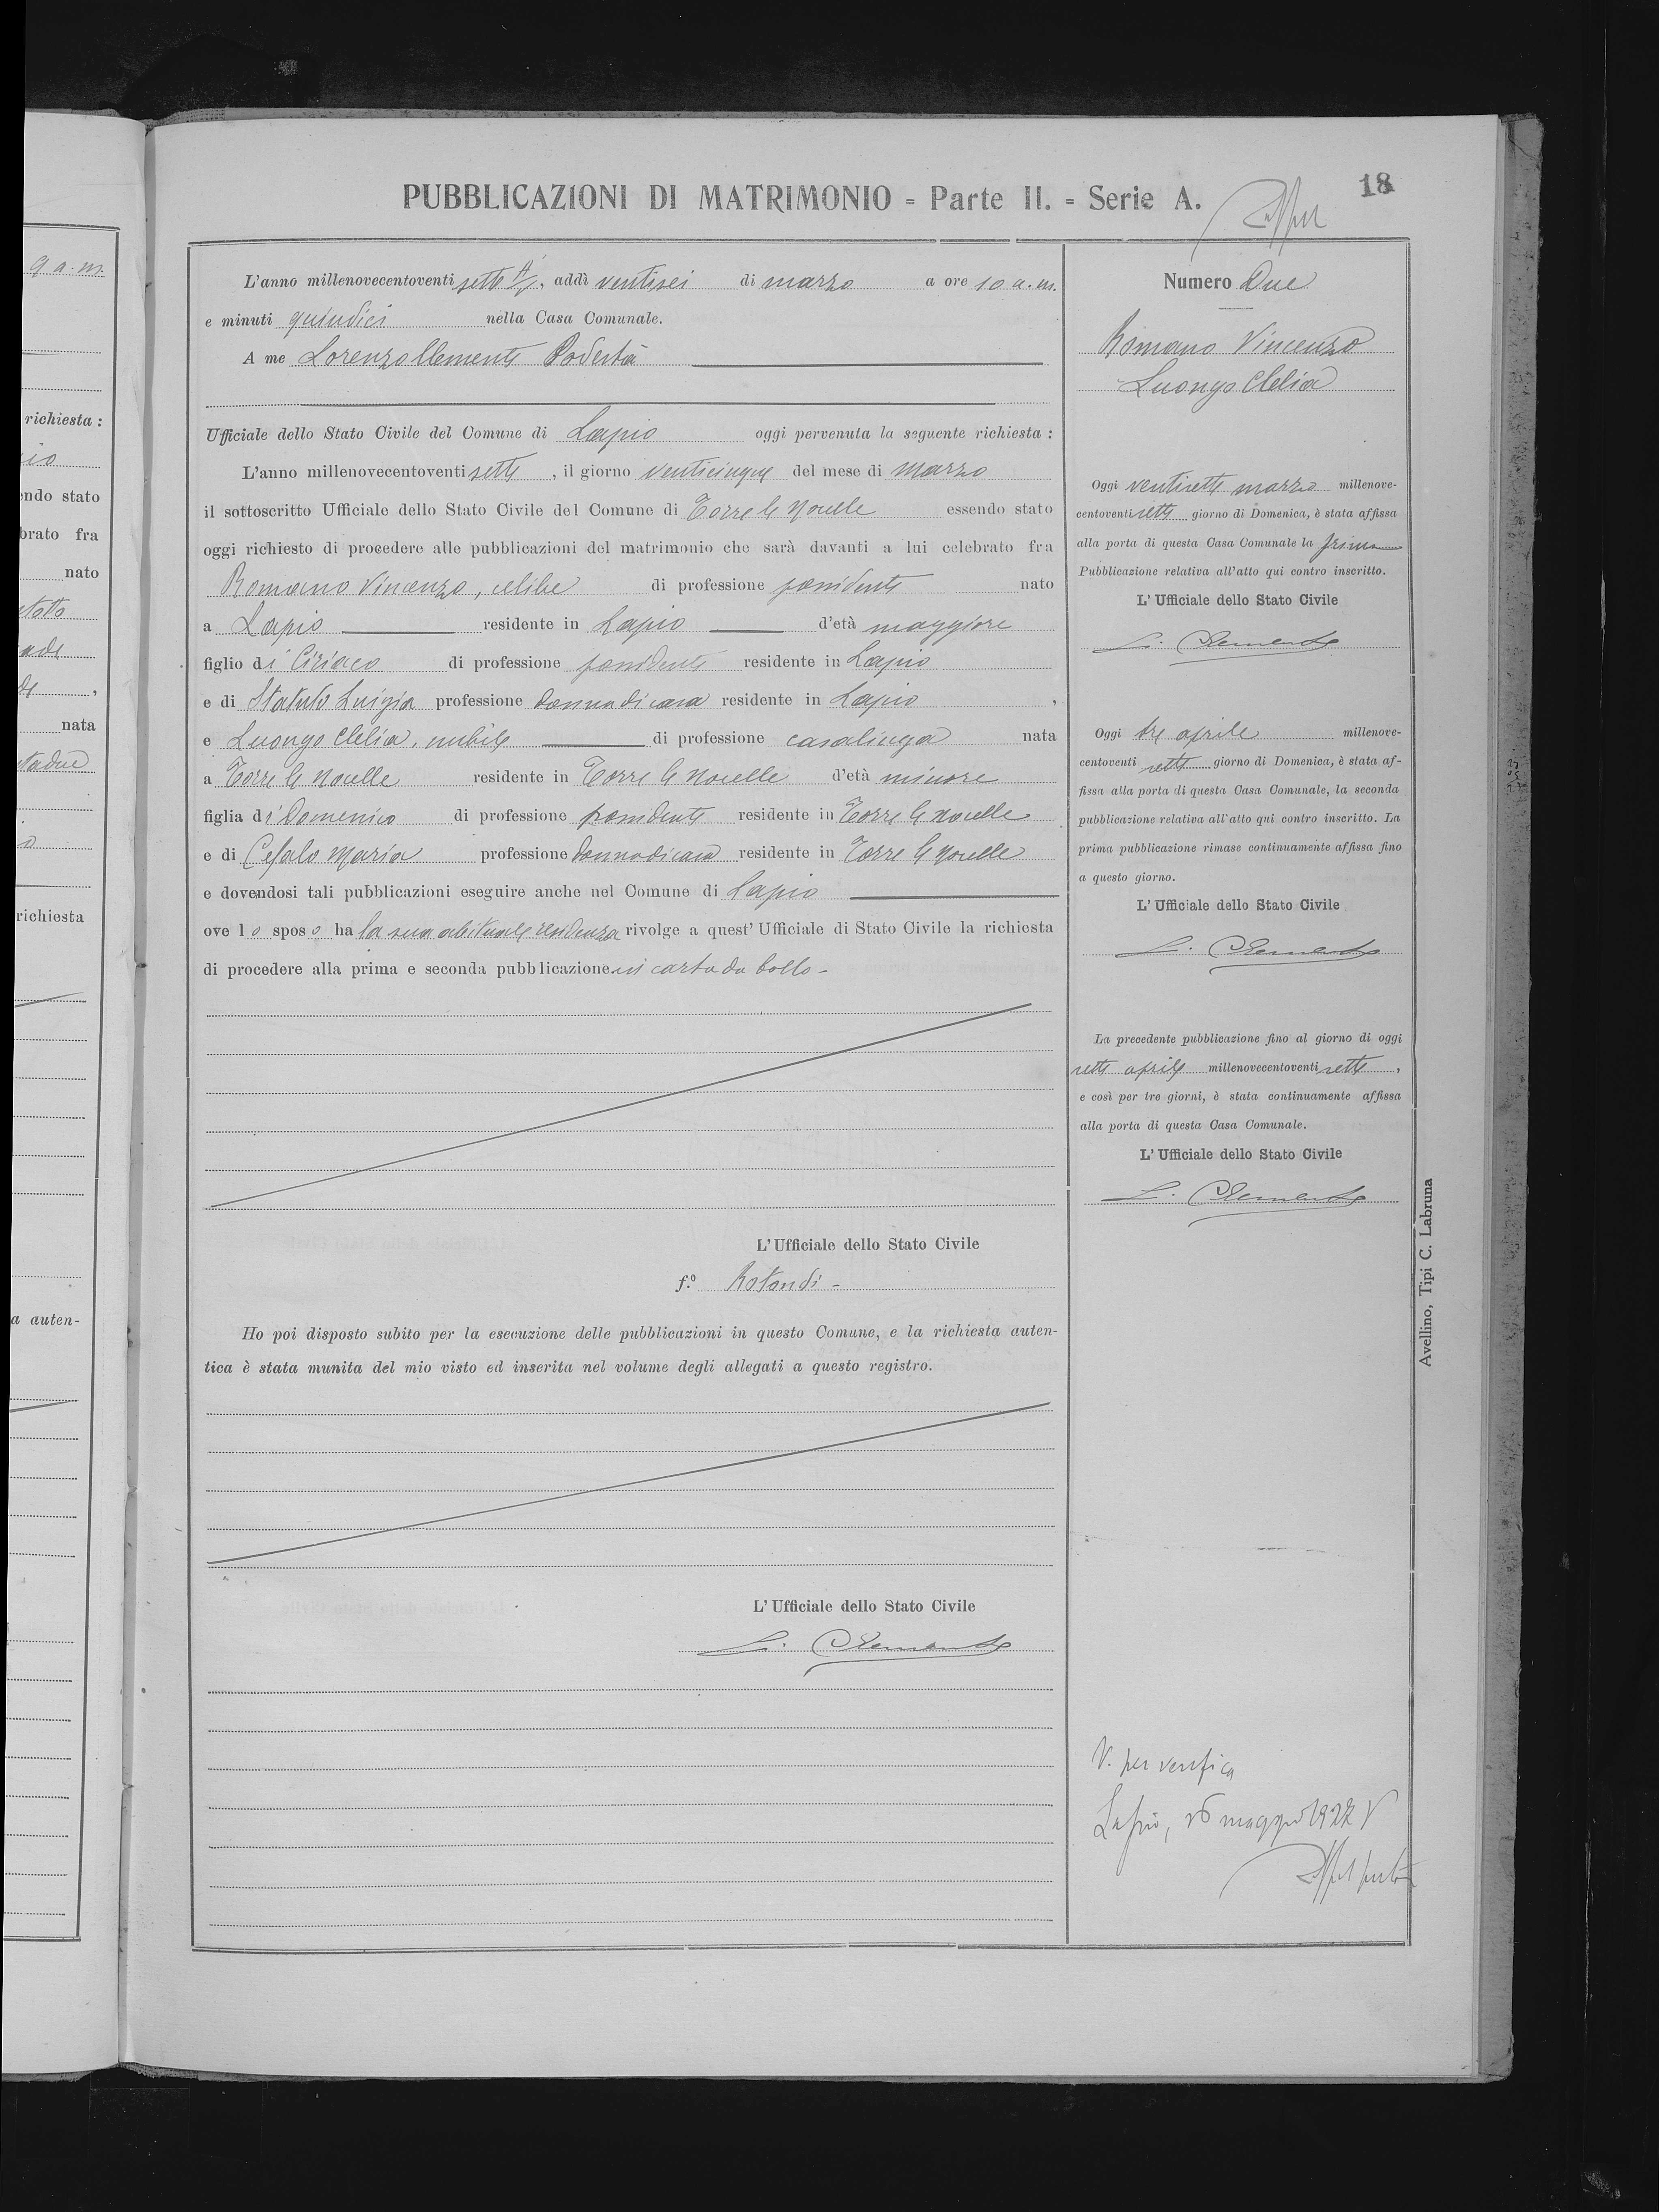 PUBBLICAZIONI DI MATRIMONIO = Parte II. = Serie A.
18
L'anno millenovecentoventi sette, addì ventisei di marzo a ore 10 a.m.
e minuti quindici nella Casa Comunale.
A me Lorenzo Clemente Podestà
Ufficiale dello Stato Civile del Comune di Lapio oggi pervenuta la seguente richiesta :
L'anno millenovecentoventi sette, il giorno venticinque del mese di marzo
il sottoscritto Ufficiale dello Stato Civile del Comune di Torre le Nocelle essendo stato
oggi richiesto di procedere alle pubblicazioni del matrimonio che sarà davanti a lui celebrato fra
Romano Vincenzo, celibe di professione possidente nato
a Lapio residente in Lapio d'età maggiore
figlio di Ciriaco di professione possidente residente in Lapio
e di Statuto Luigia professione donna di casa residente in Lapio ,
e Luongo Clelia, nubile di professione casalinga nata
a Torre le Nocelle residente in Torre le Nocelle d'età minore
figlia di Domenico di professione possidente residente in Torre le Nocelle
e di Cefalo Maria professione donna di casa residente in Torre le Nocelle
e dovendosi tali pubblicazioni eseguire anche nel Comune di Lapio
ove lo sposo ha la sua abituale residenza rivolge a quest' Ufficiale di Stato Civile la richiesta
di procedere alla prima e seconda pubblicazione in carta da bollo -
L'Ufficiale dello Stato Civile
f.º Rotondi -
Ho poi disposto subito per la esecuzione delle pubblicazioni in questo Comune, e la richiesta auten-
tica è stata munita del mio visto ed inserita nel volume degli allegati a questo registro.
L'Ufficiale dello Stato Civile
L. Clemente
Numero Due
Romano Vincenzo
Luongo Clelia
Oggi ventisette marzo millenove-
centoventi sette giorno di Domenica, è stata affissa
alla porta di questa Casa Comunale la prima
Pubblicazione relativa all'atto qui contro inscritto.
L'Ufficiale dello Stato Civile
L. Clemente
Oggi tre aprile millenove-
centoventi sette giorno di Domenica, è stata af-
fissa alla porta di questa Casa Comunale, la seconda
pubblicazione relativa all'atto qui contro inscritto. La
prima pubblicazione rimase continuamente affissa fino
a questo giorno.
L'Ufficiale dello Stato Civile
L. Clemente
La precedente pubblicazione fino al giorno di oggi
sette aprile millenovecentoventi sette,
e così per tre giorni, è stata continuamente affissa
alla porta di questa Casa Comunale.
L'Ufficiale dello Stato Civile
L. Clemente
V. per verifica
Lapio, 26 maggio 1927 V
Avellino, Tipi C. Labruna
9 a.m.
richiesta :
endo stato
brato fra
nato
nata
richiesta
a auten-